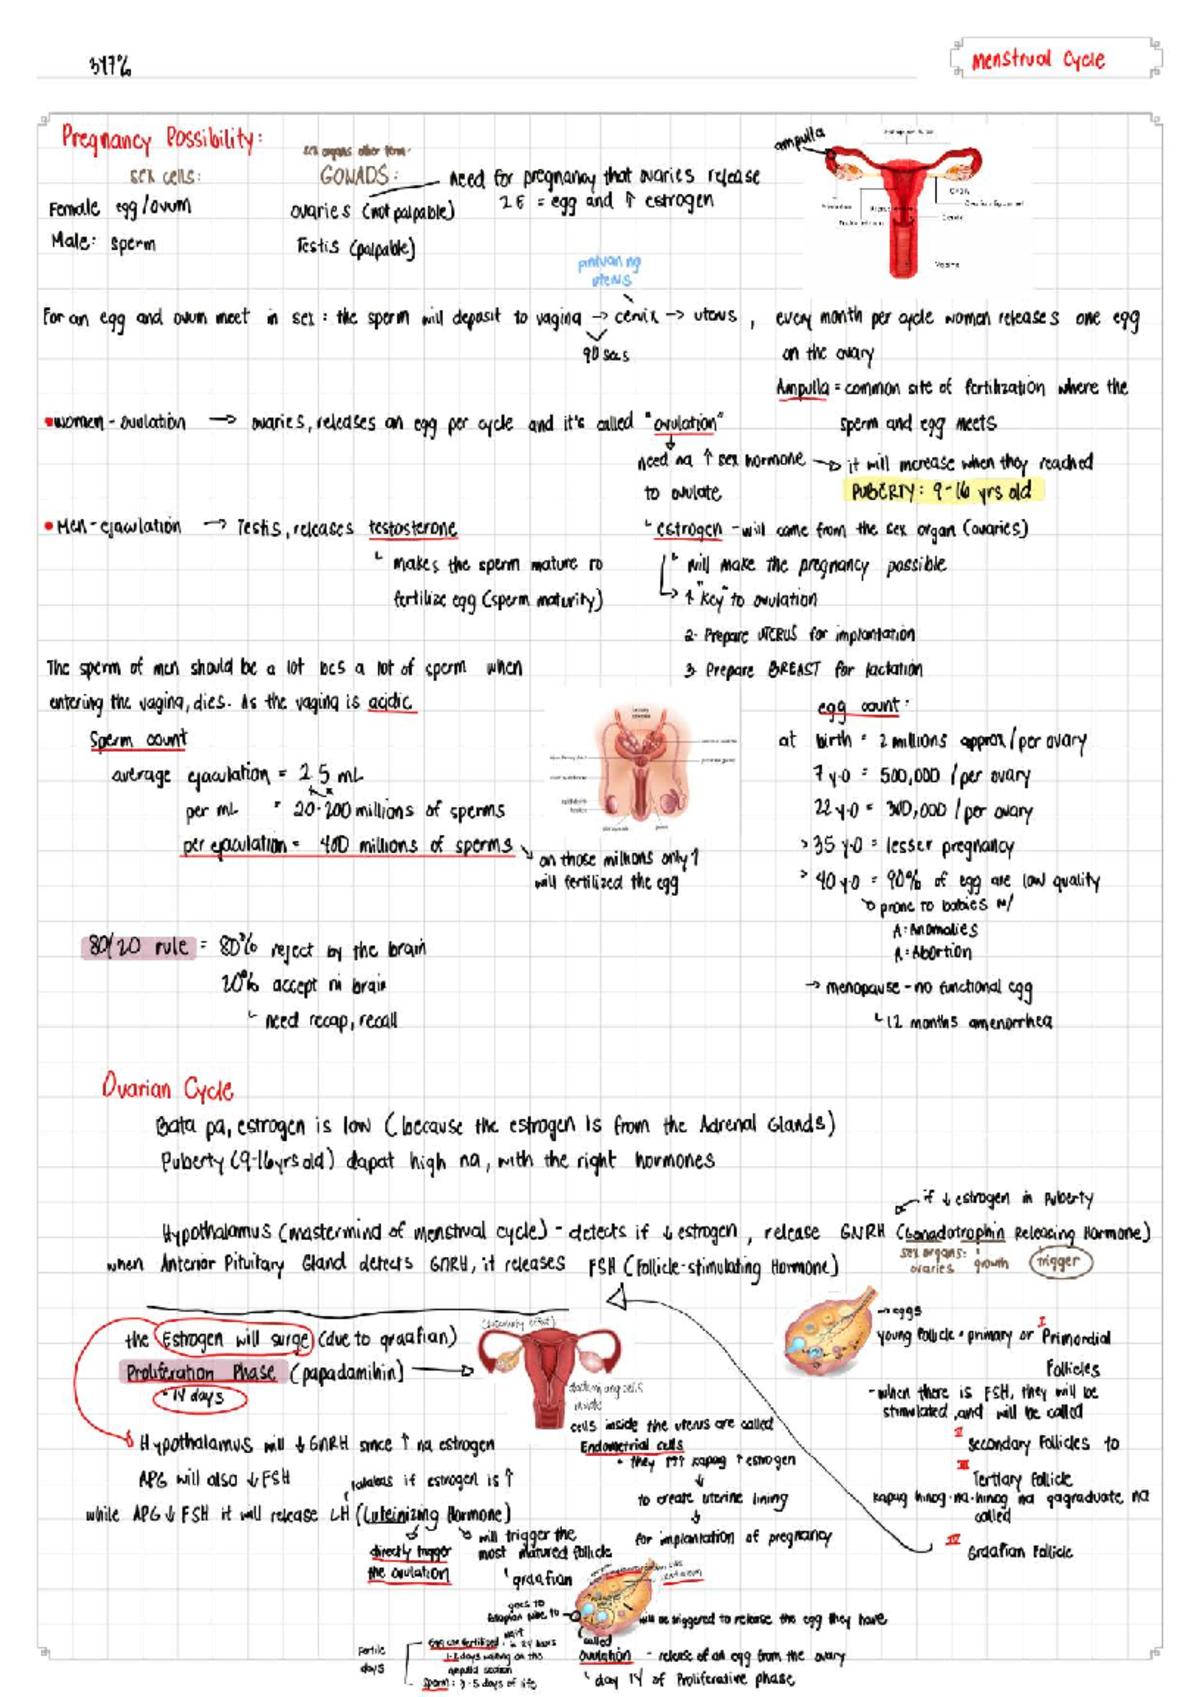 347%
Menstrual Cycle
Pregnancy Possibility:
sex cells:
Female egg/ovum
Male: sperm
sex organs other term-
GONADS:
ovaries (not palpable)
Testis (palpable)
need for pregnancy that ovaries release
2E = egg and ↑ estrogen
ampulla
Vagina
pintuan ng
uterus
For an egg and ovum meet in sex: the sperm will deposit to vagina → cervix → uterus,
90 secs
every month per cycle women releases one egg
on the ovary
Ampulla = common site of fertilization where the
sperm and egg meets
• women - ovulation → ovaries, releases an egg per cycle and it's called "ovulation"
need na ↑ sex hormone → it will increase when they reached
to ovulate
PUBERTY: 9-16 yrs old
• Men - ejaculation → Testis, releases testosterone
makes the sperm mature to
fertilize egg (sperm maturity)
estrogen - will come from the sex organ (ovaries)
will make the pregnancy possible
1 "key" to ovulation
2. Prepare UTERUS for implantation
3. Prepare BREAST for lactation
The sperm of men should be a lot bcs a lot of sperm when
entering the vaging, dies. As the vaging is acidic
Sperm count
average ejaculation = 2.5 mL
per mL = 20-200 millions of sperms
per ejaculation = 400 millions of sperms
on those millions only 1
will fertilized the egg
egg count:
at birth = 2 millions approx/per ovary
7 y.o = 500,000 /per ovary
22 y.o = 300,000 /per ovary
> 35 y.o = lesser pregnancy
> 40 y.o = 90% of egg are low quality
prone to babies w/
A: Anomalies
A: Abortion
→ menopause - no functional egg
12 months amenorrhea
80/20 rule = 80% reject by the brain
20% accept ni brain
need recap, recall
Ovarian Cycle
Bata pa, estrogen is low (because the estrogen is from the Adrenal Glands)
Puberty (9-16yrs old) dapat high na, with the right hormones
if ↓ estrogen in puberty
Hypothalamus (mastermind of menstrual cycle) - detects if ↓ estrogen, release GNRH (Gonadotrophin Releasing Hormone)
sex organs: growth
ovaries
trigger
when Anterior Pituitary Gland detects GnRH, it releases FSH (Follicle-stimulating Hormone)
the Estrogen will surge (due to graafian)
Proliferation Phase (papadamihin) →
14 days
Hypothalamus will ↓ GnRH since ↑ na estrogen
APG will also ↓ FSH
lalabas if estrogen is ↑
while APG ↓ FSH it will release LH (Luteinizing Hormone)
directly trigger
the ovulation
will trigger the
most matured follicle
graafian
inside
cells inside the uterus are called
Endometrial cells
• they ↑↑↑ kapag ↑ estrogen
to create uterine lining
for implantation of pregnancy
→ eggs
young follicle = primary or I Primordial
Follicles
- when there is FSH, they will be
stimulated, and will be called
II secondary Follicles to
III Tertiary Follicle
kapag hinog-na-hinog na gagraduate na
called
IV Graafian Follicle
goes to
fallopian tube to
wait
will be triggered to release the egg they have
called
ovulation - release of an egg from the ovary
day 14 of Proliferative phase
Fertile
days
Egg can fertilized: 24 hours
days waiting on the
ampulla section
Sperm: 3-5 days of life